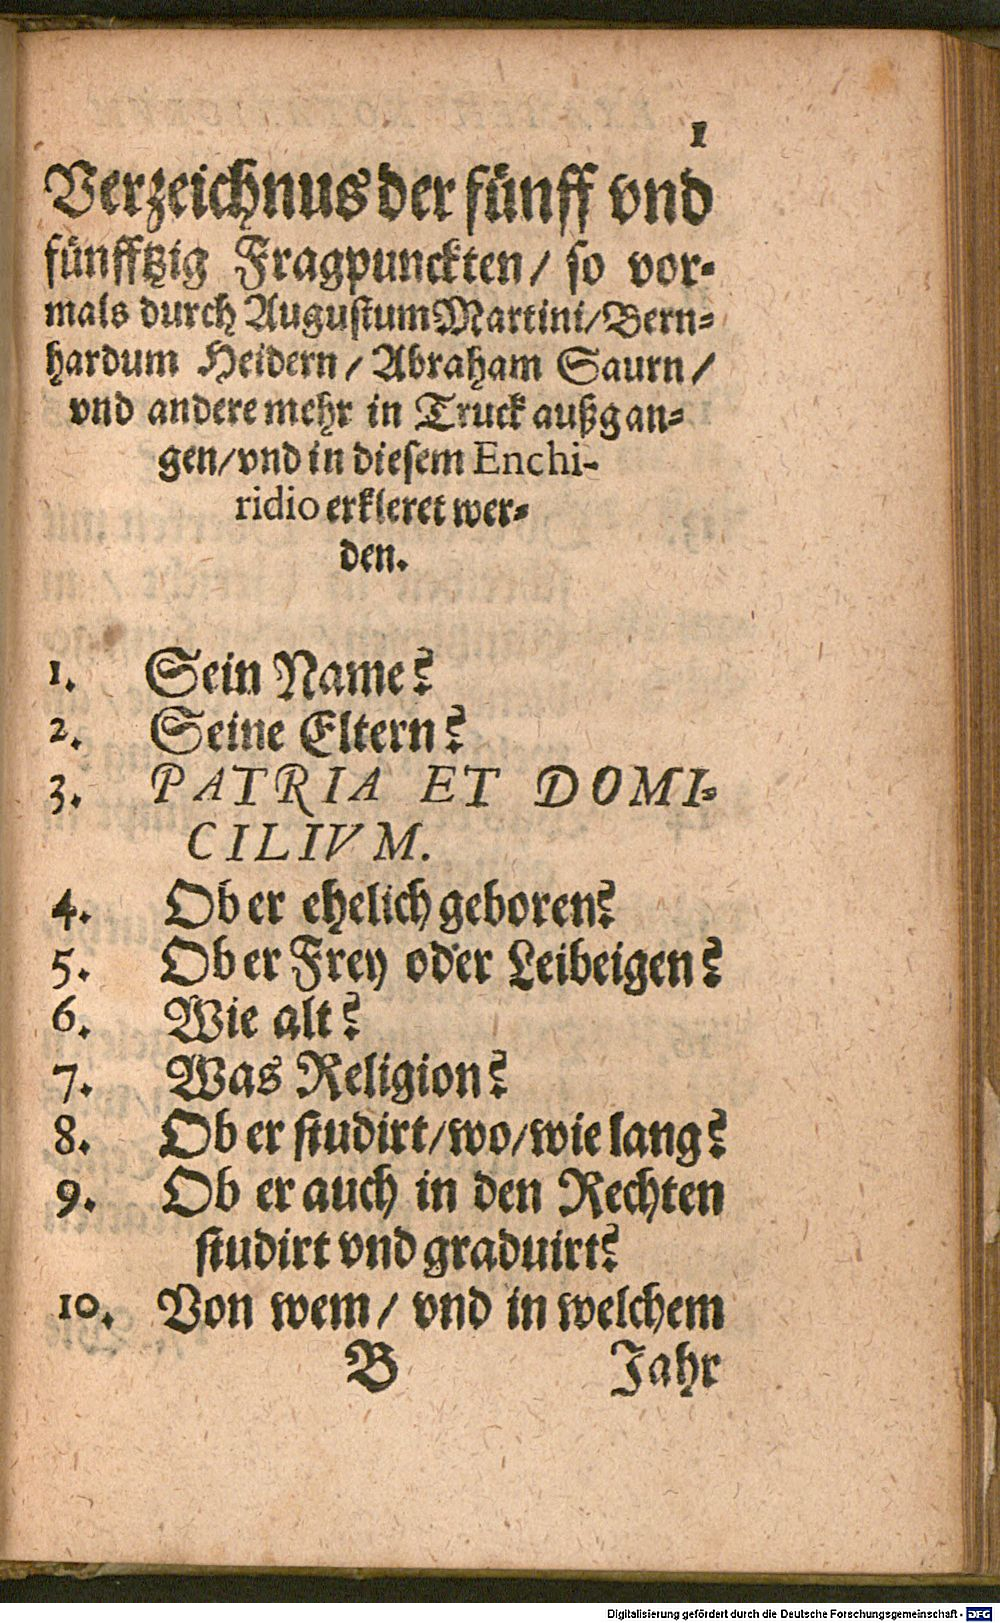 1
Verzeichnus der fünff vnd
fünfftzig Fragpunckten/ so vor-
mals durch Augustum Martini/Bern-
hardum Heidern/ Abraham Saurn/
vnd andere mehr in Truck außgan-
gen/vnd in diesem Enchi-
ridio erkleret wer-
den.
1. Sein Name?
2. Seine Eltern?
3. PATRIA ET DOMI-
CILIVM.
4. Ob er ehelich geboren?
5. Ob er Frey oder Leibeigen?
6. Wie alt?
7. Was Religion?
8. Ob er studirt/wo/wie lang?
9. Ob er auch in den Rechten
studirt vnd graduirt?
10. Von wem/ vnd in welchem
B Jahr
Digitalisierung gefördert durch die Deutsche Forschungsgemeinschaft - DFG